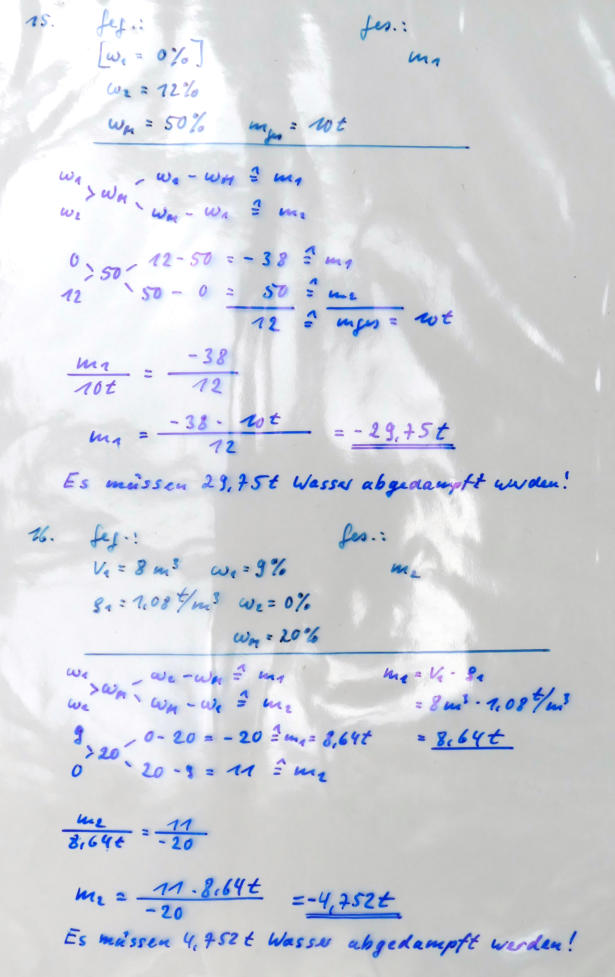 15. Geg.: Ges.:
[w₁ = 0%] m₁
w₂ = 12%
w_M = 50% m_ges = 10t
w₁ > w_M w₂ - w_M ≙ m₁
w₂ w_M - w₁ ≙ m₂
0 > 50 12 - 50 = - 38 ≙ m₁
12 50 - 0 = 50 ≙ m₂
12 ≙ m_ges = 10t
m₁/10t = -38/12
m₁ = -38 · 10t/12 = - 29,75t
Es müssen 29,75t Wasser abgedampft werden!
16. Geg.: Ges.:
V₁ = 8 m³ w₁ = 9% m₂
ϱ₁ = 1,08 t/m³ w₂ = 0%
w_M = 20%
w₁ > w_M w₂ - w_M ≙ m₁ m₁ = V₁ · ϱ₁
w₂ w_M - w₁ ≙ m₂ = 8m³ · 1,08 t/m³
9 > 20 0 - 20 = - 20 ≙ m₁ = 8,64t = 8,64t
0 20 - 9 = 11 ≙ m₂
m₂/8,64t = 11/-20
m₂ = 11 · 8,64t/-20 = -4,752t
Es müssen 4,752t Wasser abgedampft werden!